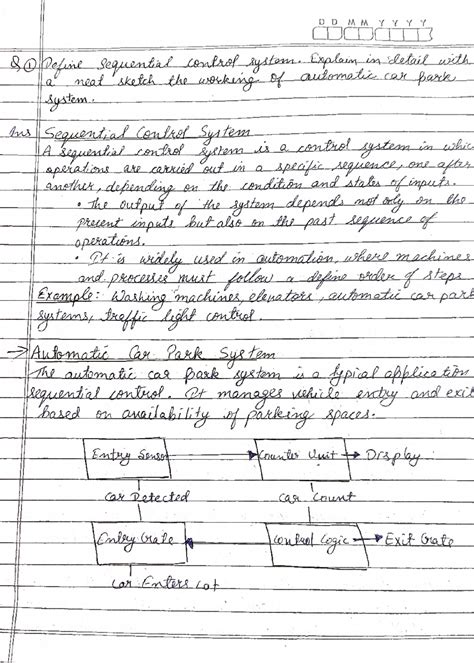 D D M M Y Y Y Y
Q ① Define sequential control system. Explain in detail with
a neat sketch the working of automatic car park
system.
Ans Sequential Control System
A sequential control system is a control system in whic
operations are carried out in a specific sequence, one after
another, depending on the condition and states of inputs.
• The output of the system depends not only on the
present inputs but also on the past sequence of
operations.
• It is widely used in automation, where machines
and processes must follow a define order of steps
Example: Washing machines, elevators, automatic car park
systems, traffic light control.
→ Automatic Car Park System
The automatic car park system is a typial application
sequential control. It manages vehicle entry and exit
based on availability of parking spaces.
Entry Sensor → Counter Unit → Display
Car Detected Car Count
Entry Gate ← Control Logic → Exit Gate
Car Enters Lot